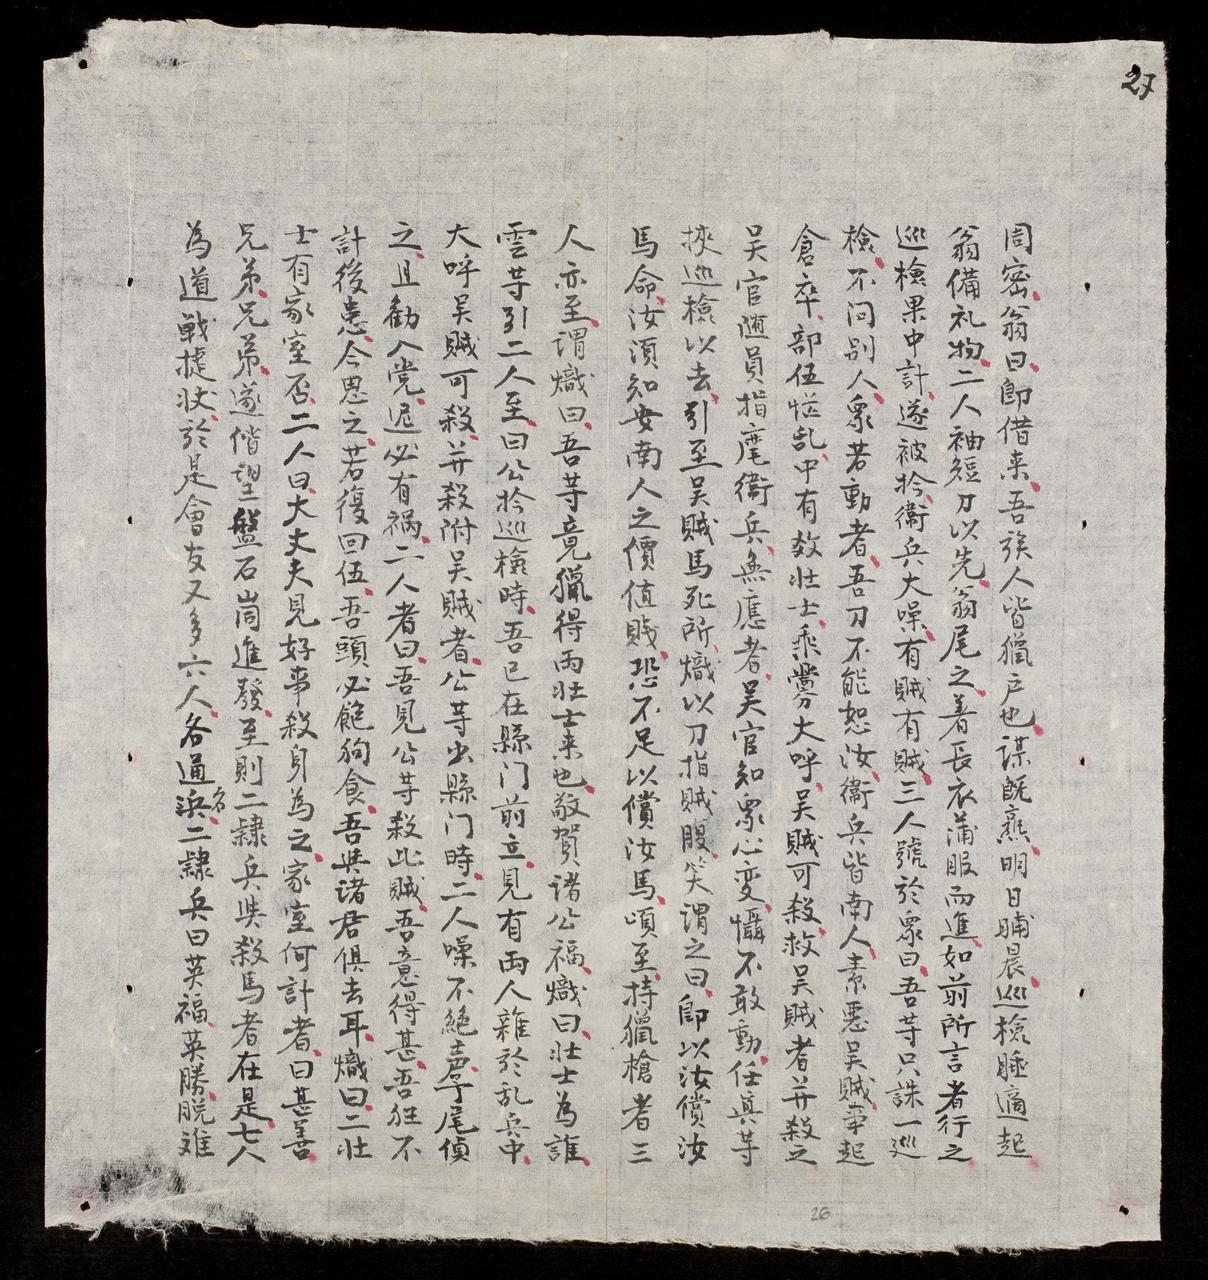 27
周密翁曰即借来吾族人皆獵户也謀既熏明日晡晨巡檢睡適起
翁備礼物二人袖短刀以先翁尾之着長衣蒲服而進如前所言者行之
巡檢果中計遂被拎衛兵大噪有贼有贼三人號於衆曰吾等只誅一巡
檢不问别人衆若動者吾刀不能恕汝衞兵皆南人素悪吴贼事起
倉卒部伍忙乱中有数壮士乘釁大呼吴贼可殺救吴贼者并殺之
吴官随員指麾衛兵無應者吴官知衆心变懾不敢動任真等
挾巡檢以去引至吴贼馬死所熾以刀指贼腹笑謂之曰即以汝償汝
馬命汝須知安南人之價值贱恐不足以償汝馬頃至持獵槍者三
人亦至謂熾曰吾等竟獵得両壮士来也敬賀诸公福熾曰壮士為誰
雲等引二人至曰公拎巡檢時吾已在縣门前立見有両人雜於乱兵中
大呼吴贼可殺并殺附吴贼者公等出縣门時二人噪不絶声尾偵
之且勧入党迟必有祸二人者曰吾見公等殺此贼吾意得甚吾狂不
計後患今思之若復回伍吾頭必飽狗食吾与诸君俱去耳熾曰二壮
士有家室否二人曰大丈夫見好事殺身為之家室何計者曰甚善
兄弟兄弟遂偕望盤石崗進發至則二隷兵与殺馬者在是七人
為道戦捷状於是會友又多六人各通名二隷兵曰英福英勝脱难
26